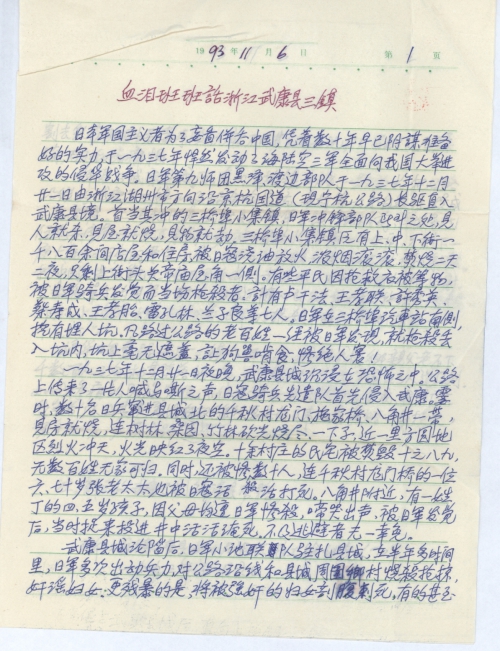 1993年11月6日 第1页
血泪斑斑话浙江武康县三镇
日本军国主义者为了妄图併吞中国,凭着数十年早已阴谋准备
好的实力,于一九三七年悍然发动了海陆空三军全面向我国大举进
攻的侵华战争。日军第九师团黑津、渡边部队于一九三七年十二月
廿一日由浙江湖州市方向沿京杭国道(现宁杭公路)长驱直入
武康县境。首当其中的三桥埠小集镇,日军冲锋部队所到之处,见
人就杀,见屋就烧,见物就劫,三桥埠小集镇在有上、中、下街一
千八百余间店屋和住房被日寇浇油放火,浓烟滚滚,焚烧二天
二夜,只剩上街头关帝庙屋角一侧。有些平民因抢救衣被等物,
被日军骑兵发觉而当场枪杀者,计有卢千法、王孝
蔡寿成、王孝 雷孔林、兰子良等七人。日军在三桥埠汽车站南侧,
挖有埋人坑,凡路过公路的老百姓一经被日军发现,就枪殺丢
入坑内,坑上毫无遮盖,让狗兽啃食,惨绝人寰!
一九三七年十二月廿一日夜晚,武康县城沉浸在恐怖之中,公路
上传来了一片人喊马嘶之声,日寇骑兵先遣队首先侵入武康,霎
时,数十名日兵窜进县城北的千秋村龙门、施家桥、八角井一带,
见房就烧,连树林、桑园、竹林砍光烧尽,一下子,近一里方圆地
区烈火冲天,火光映红了夜空。十余村庄的民宅被焚毁十之八九,
无数百姓无家可归。同时,还被惨数十人,连千秋村龙门桥的一位
六、七十岁张老太太也被日寇活 活打死。八角井附近,有一姓
丁的四、五岁孩子,因父母均遭日军惨殺,啼哭出声,被日军发觉
后,当时捉来掷进井中活活淹死,不及逃避者无一幸免。
武康县城沦陷后,日军小池联队驻扎县城,在半年多时间
里,日军多次出动兵力,对公路沿线和县城周围乡村烧殺抢掠,
奸淫妇女,更残暴的是,将被强奸的妇女剖腹刺死,有的甚至